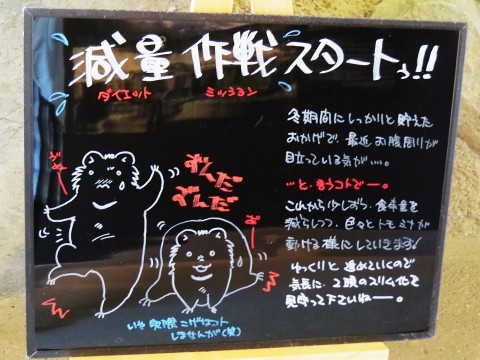 減量 作戦 スタートぅ!!
ダイエット ミッション
冬期間にしっかりと貯えた
おかげで、最近お腹周りが
目立っている気が…。
…と、言うコトでー。
これから少しずつ、食事量を
減らしつつ、色々とトモミナが
動ける様にしていきます!
ゆっくりと進めていくので
気長に、2頭のスリム化を
見守って下さいねー。
ずんだ
いや 実際 こげなコト
しませんが(笑)